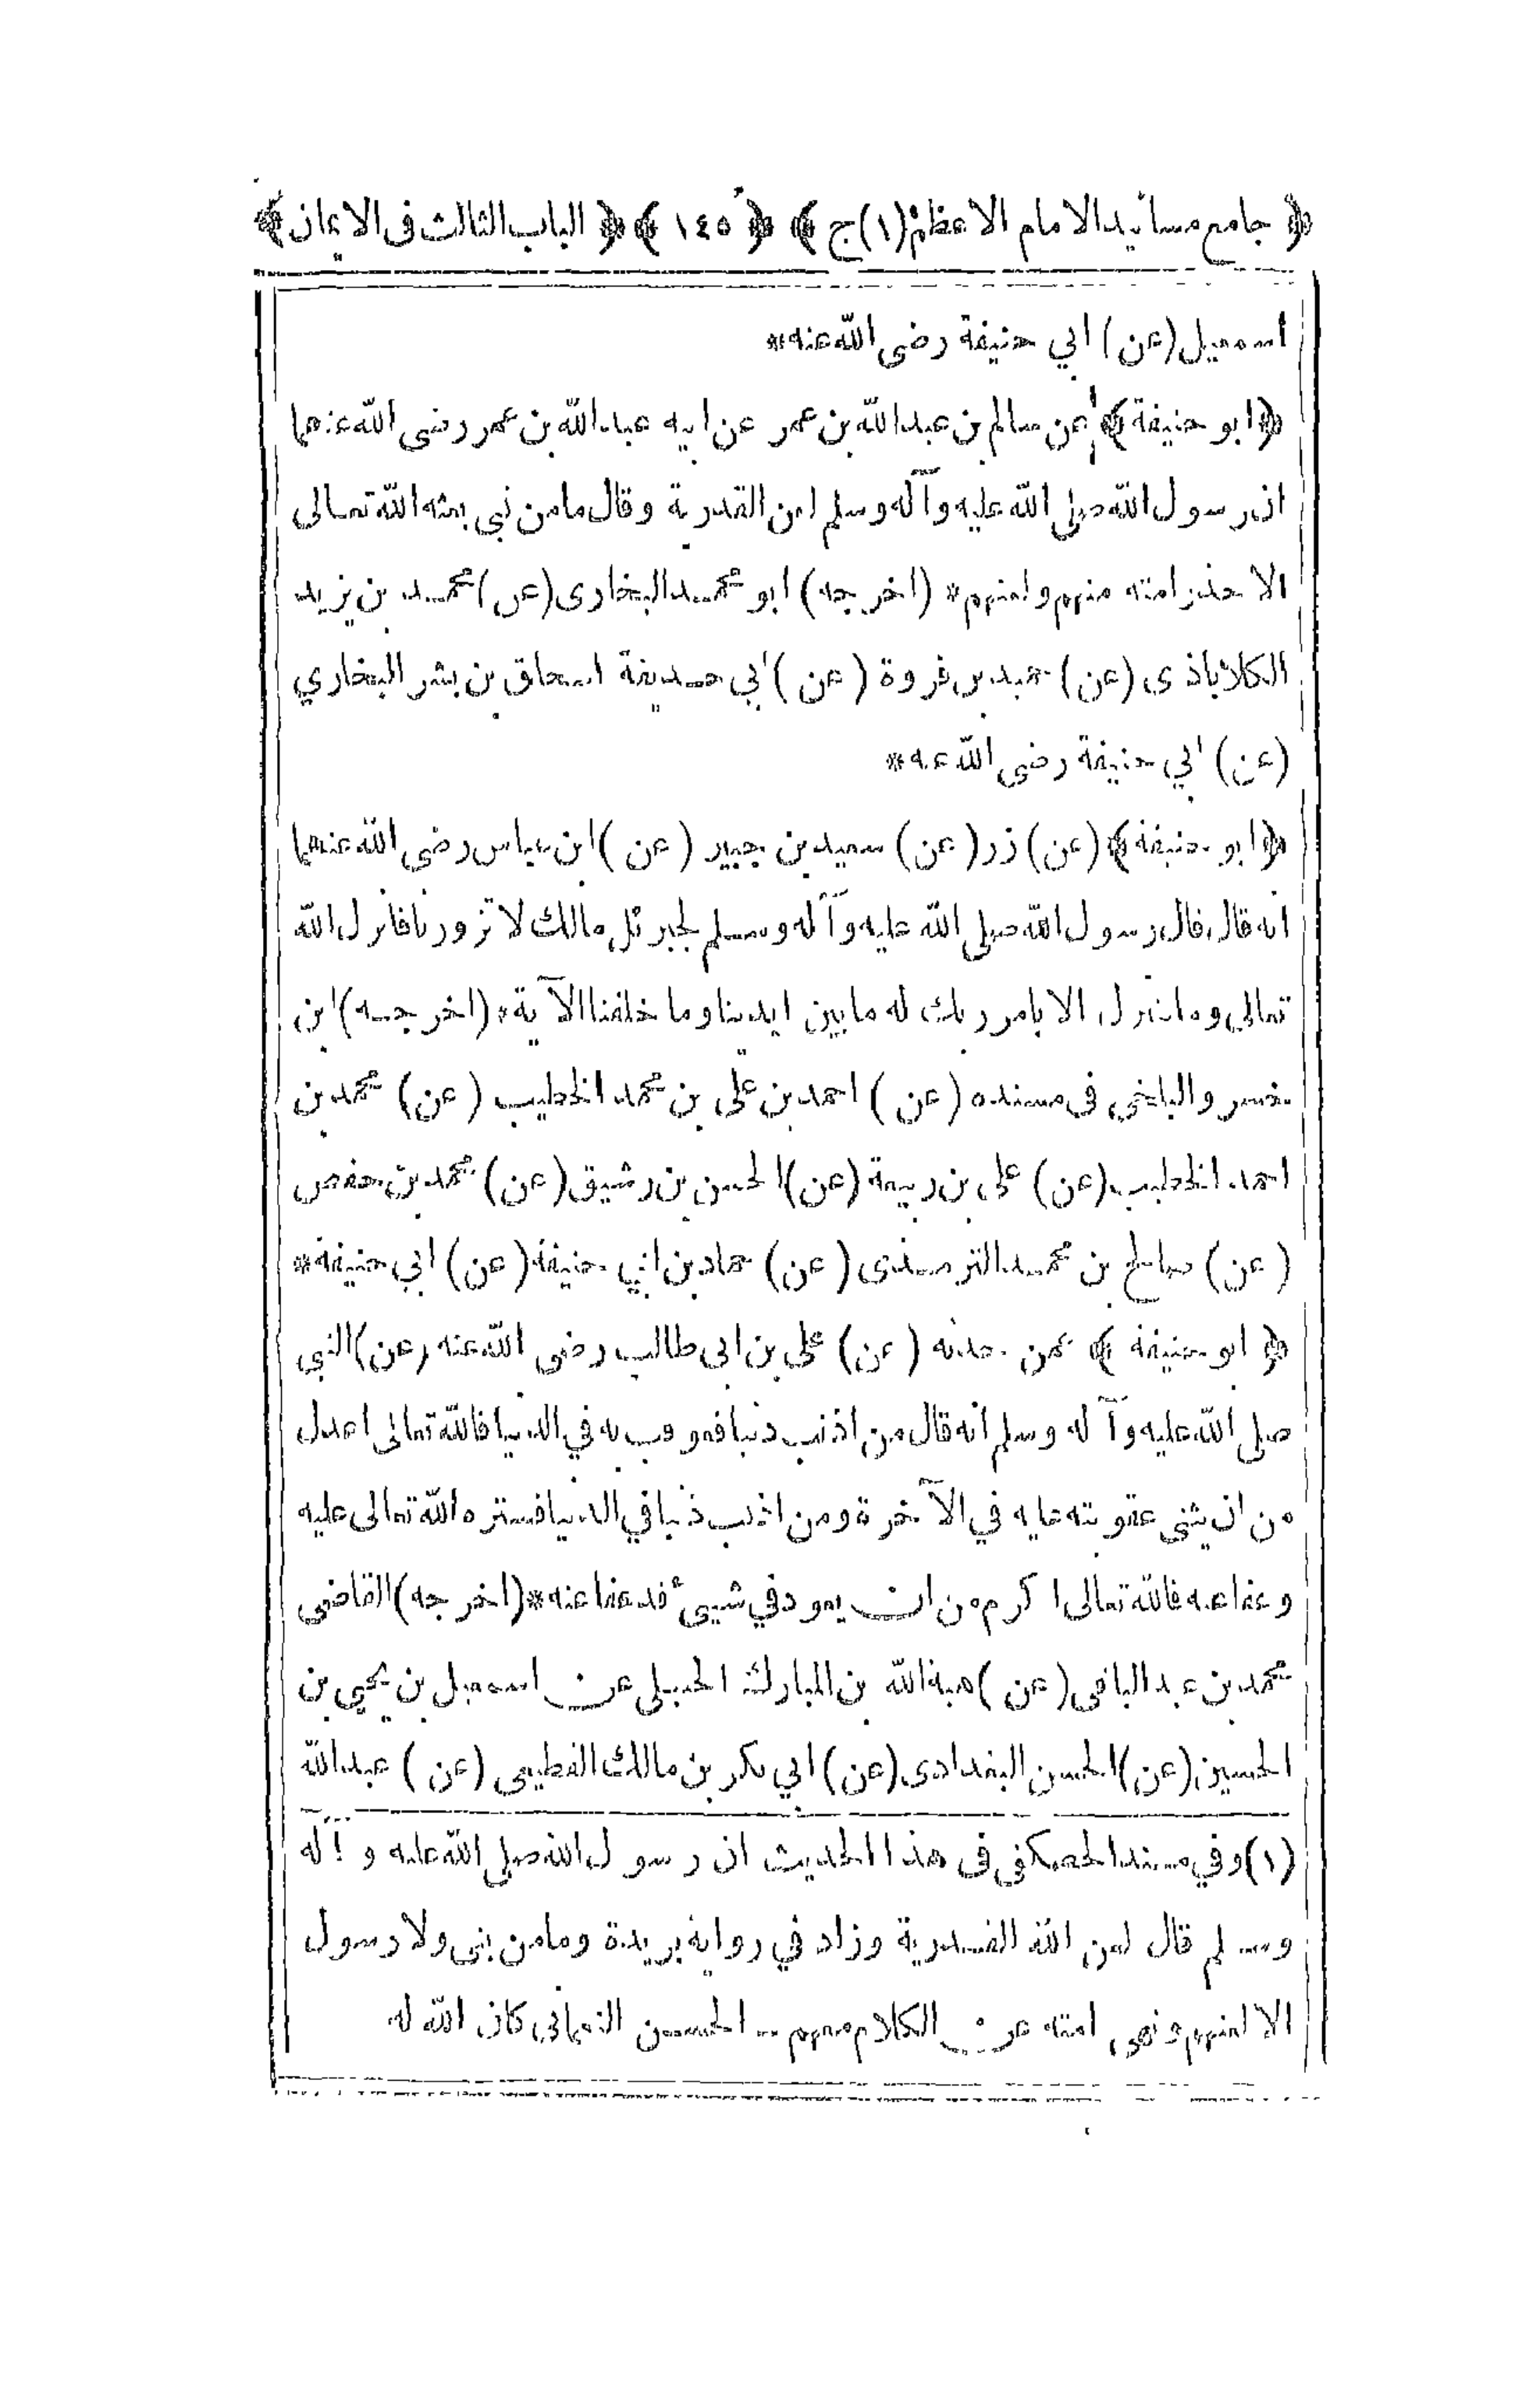 ﴿ جامع مسانيد الامام الاعظم (١) ج ﴾ ﴿ ١٤٥ ﴾ ﴿ الباب الثالث فى الايمان ﴾
اسمعيل (عن) ابي حنيفة رضى الله عنه*
﴿ ابو حنيفة ﴾ عن سالم بن عبد الله بن عمر عن ابيه عبد الله بن عمر رضى الله عنهما
ان رسول الله صلى الله عليه وآله وسلم لعن القدرية وقال مامن نبي بعثه الله تعالى
الا حذر امته منهم ولعنهم* (اخرجه) ابو محمد البخارى (عن) محمد بن يزيد
الكلاباذى (عن) عبد بن فروة (عن) ابي حذيفة اسحاق بن بشر البخاري
(عن) ابي حنيفة رضى الله عنه*
﴿ ابو حنيفة ﴾ (عن) زر (عن) سعيد بن جبير (عن) ابن عباس رضى الله عنهما
انه قال قال رسول الله صلى الله عليه وآله وسلم لجبرئل مالك لا تزورنا فانزل الله
تعالى وما ننزل الا بامر ربك له ما بين ايدينا وما خلفنا الآية* (اخرجه) ابن
خسرو البلخى فى مسنده (عن) احمد بن على بن محمد الخطيب (عن) محمد بن
احمد الخطيب (عن) على بن ربيعة (عن) الحسن بن رشيق (عن) محمد بن حفص
(عن) صالح بن محمد الترمذى (عن) حماد بن ابي حنيفة (عن) ابي حنيفة*
﴿ ابو حنيفة ﴾ عمن حدثه (عن) على بن ابى طالب رضى الله عنه (عن) النبي
صلى الله عليه وآله وسلم انه قال من اذنب ذنبا فعوقب به في الدنيا فالله تعالى اعدل
من ان يثنى عقوبته عليه في الآخرة ومن اذنب ذنبا في الدنيا فستره الله تعالى عليه
وعفا عنه فالله تعالى اكرم من ان يعود في شيئ قد عفا عنه* (اخرجه) القاضى
محمد بن عبد الباقى (عن) هبة الله بن المبارك الحنبلى عن اسمعيل بن يحيى بن
الحسين (عن) الحسن البغدادى (عن) ابي بكر بن مالك القطيعى (عن) عبد الله
(١) وفي مسند الحصكفى فى هذا الحديث ان رسول الله صلى الله عليه و آله
وسلم قال لعن الله القدرية وزاد في رواية بريدة ومامن نبى ولا رسول
الا لعنهم ونهى امته عن الكلام معهم .. الحسن النعمانى كان الله له